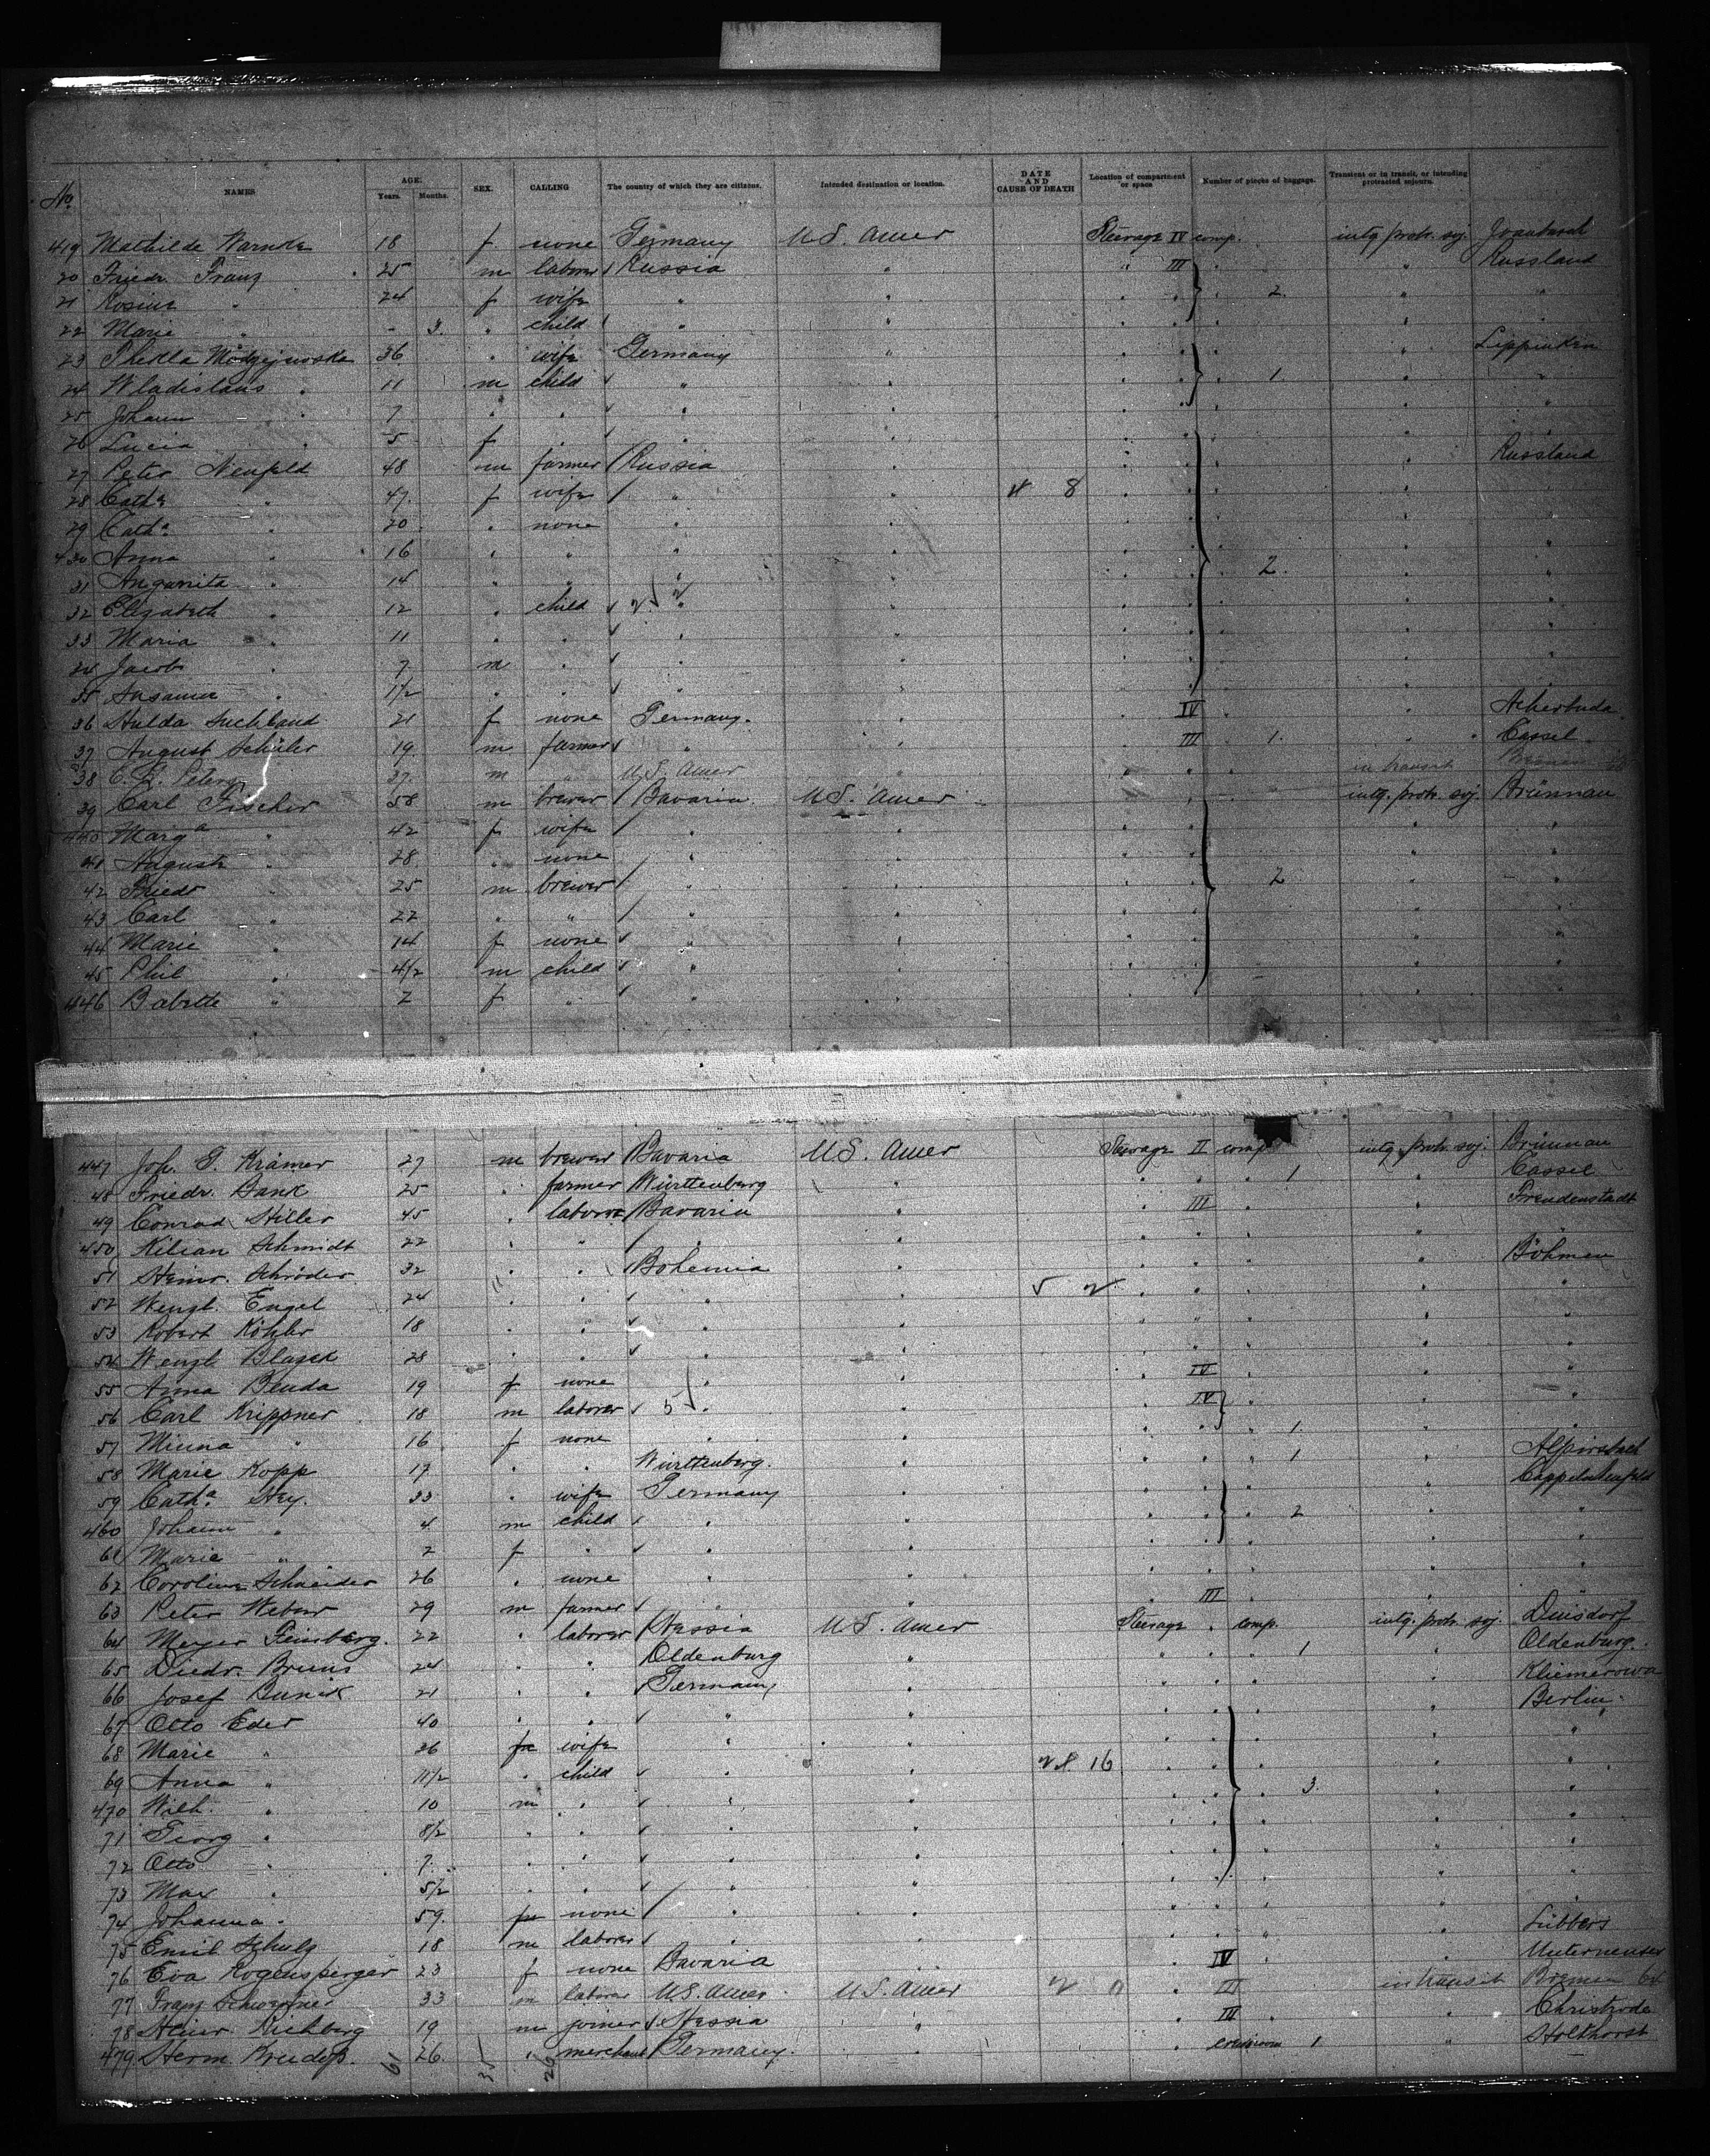 No. NAMES AGE. Years. Months. SEX. CALLING The country of which they are citizens. Intended destination or location. DATE AND CAUSE OF DEATH Location of compartment or space Number of pieces of baggage. Transient or in transit, or intending protracted sojourn.
419 Mathilde Warnke 18 f none Germany U.S. Amer Steerage IV comp. intg. protr. soj.
20 Friedr. Franz 25 m laborer Russia " " III " " Russland
21 Rosine " 24 f wife " " " " 2. " "
22 Marie " - 3. " child " " " " " "
23 Thekla 36. " wife Germany " " " " Lippinken
24 Wladislaus " 11 m child " " " " 1. " "
25 Johann " 7 " " " " " " " "
26 Lucia " 5 f " " " " " " "
27 Peter Neufeld 48 m farmer Russia " " " " Russland
28 Cath.a " 47. f wife " " 8 " " " "
29 Cath.a " 20 " none " " " " " "
430 Anna " 16 " " " " " " " "
31 Anganita " 14 " " " " " " 2. " "
32 Elizabeth " 12 " child " " " " " "
33 Maria " 11 " " " " " " " "
34 Jacob " 7 m " " " " " " "
35 Susanna " 1 1/2 " " " " " " " "
36 Hulda Suchland 21 f none Germany. " " IV " "
37 August Schüler 19. m farmer " " " III 1. " Cassel
38 C. H. Peters 37. m " U.S. Amer " " " in transit Bremen
39 Carl Fischer 58 m brewer Bavaria U.S. Amer " " intg. protr. soj. Brünnau
440 Marg.a " 42 f wife " " " " " "
41 Auguste " 28 " none " " " " " "
42 Friedr " 25 m brewer " " " " 2 " "
43 Carl " 22 " " " " " " " "
44 Marie " 14 f none " " " " " "
45 Phil " 4 1/2 m child " " " " " "
446 Babette " 2 f " " " " " " "
447 Joh. G. Krämer 27 m brewer Bavaria U.S. Amer Steerage II comp. intg. protr. soj. Brünnau
48 Friedr. Bank 25 " farmer Württenberg " " " " 1 " Cassel
49 Conrad Hiller 45 " laborer Bavaria " " III " " Freudenstadt
450 Kilian Schmidt 22 " " " " " " " " "
51 Heinr. Schröder 32 " " Bohemia " " " " " Böhmen
52 Wenzl. Engel 24 " " " " 5 2 " " " " "
53 Robert Köhler 18 " " " " " " " " "
54 Wenzl Blazek 28 " " " " " " " " "
55 Anna Benda 19 f none " " " IV " " "
56 Carl Krippner 18 m laborer " " " IV " " "
57 Minna " 16 f none " " " " " 1. " "
58 Marie Kopp 17 " " Württenberg. " " " " 1 " Alpirsbach
59 Cath.a Hey. 33 " wife Germany " " " " "
460 Johann " 4 m child " " " " " 2 " "
61 Marie " 2 f " " " " " " " "
62 Caroline Schneider 26 " none " " " " " " "
63 Peter Weber 29 m farmer " " " III " "
64 Meyer Feinberg. 22 " laborer Hessia U.S. Amer Steerage " comp. intg. protr. soj. Duisdorf
65 Diedr. Bruns 24 " " Oldenburg " " " " 1 " Oldenburg.
66 Josef 21 " " Germany " " " " "
67 Otto Eder 40 " " " " " " " " Berlin.
68 Marie " 36 f wife " " " " " " "
69 Anna " 11 1/2 " child " " 16 " " " " "
470 Wilh. " 10 m " " " " " " 3. " "
71 Georg " 8 1/2 " " " " " " " " "
72 Otto " 7. " " " " " " " " "
73 Max " 5 1/2 " " " " " " " " "
74 Johanna " 59. f none " " " " " " "
75 Emil Schulz 18 m laborer " " " " " " Lübbers
76 Eva Rogensperger 23 f none Bavaria " " IV "
77 Franz 33 m laborer U.S. Amer. U.S. Amer " III in transit Bremen
78 Heinr. Richberg 19 m joiner Hessia " " III " "
479 Herm. 26. " merchant Germany. " " 1 " Holthorst